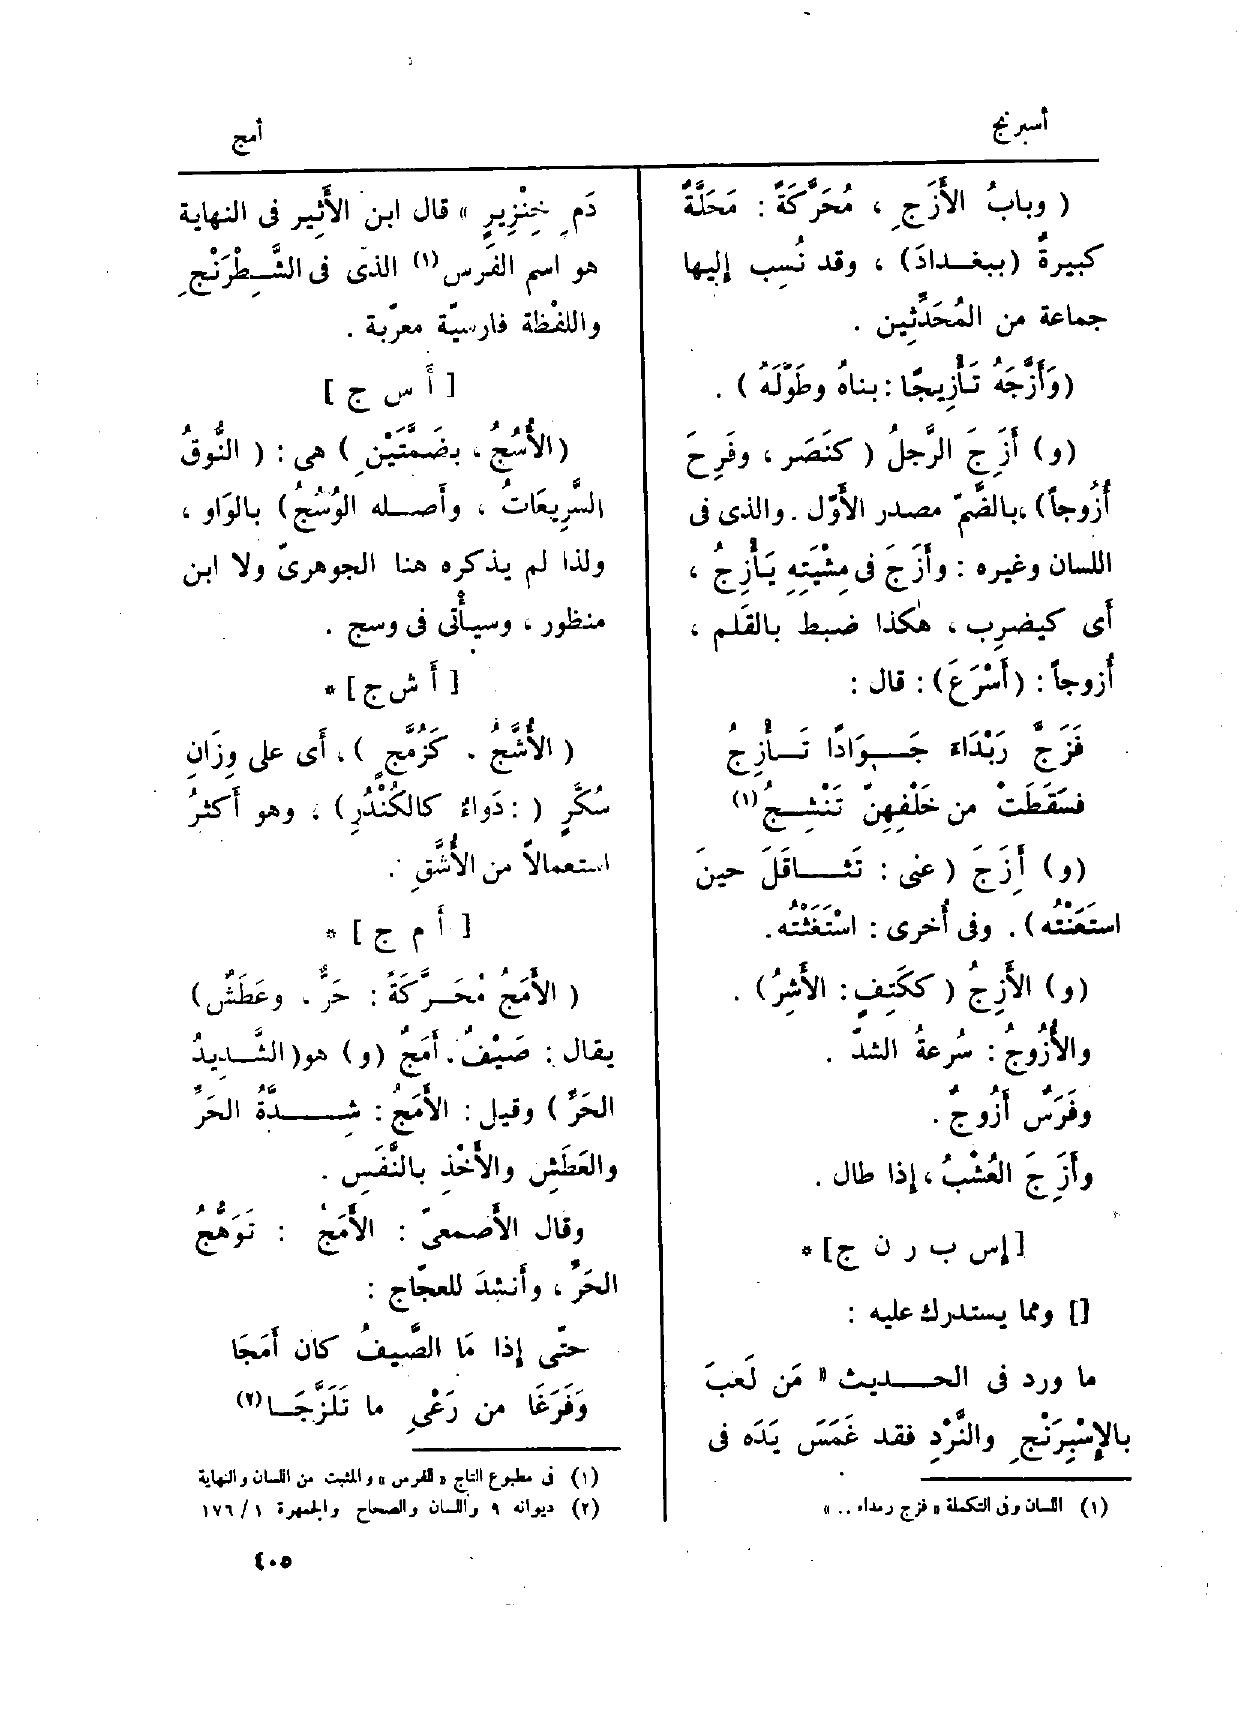 أسبرنج
أمج
( وبابُ الأَزَجِ ، مُحَرَّكَةً : مَحَلَّةٌ
كبيرةٌ (ببغداد) ، وقد نُسِب إليها
جماعة من المُحَدِّثِين .
(وَأَزَّجَهُ تَأْزِيجًا : بناهُ وطَوَّلَهُ ) .
(و) أَزَجَ الرَّجلُ ( كنَصَر ، وفَرِحَ
أُزُوجاً) ،بالضَّمّ مصدر الأَوّل . والذى فى
اللسان وغيره : وأَزَجَ فى مِشْيَتِهِ يَأْزِجُ ،
أى كيضرِب ، هكذا ضبط بالقَلَم ،
أُزوجاً : (أَسْرَعَ) : قال :
فَزَجَّ رَبْدَاءَ جَوَادًا تَأْزِجُ
فسَقَطَتْ من خَلْفِهِنّ تَنْشِجُ(١)
(و) أَزِجَ ( عنى : تَثَاقَلَ حينَ
استَعَنْتُه ) . وفى أُخرى : اسْتَغَثْتُه .
(و) الأَزِجُ ( ككَتِفٍ : الأَشِرُ) .
والأُزُوج : سُرعةُ الشدّ .
وفَرَسٌ أَزُوجٌ .
وأَزِجَ العُشْبُ ، إذا طال .
[إس ب ر ن ج] *
[] ومما يستدرك عليه :
ما ورد فى الحديث « مَن لَعبَ
بالإِسْبِرَنْجِ والنَّرْدِ فقد غَمَسَ يَدَه فى
(١) اللسان وفى التكملة « فزج رمداء .. »
دَمِ خِنْزِيرٍ » قال ابن الأَثِير فى النهاية
هو اسم الفَرَس(١) الذى فى الشِّطْرَنْجِ
واللفْظة فارسيّة معرّبة .
[ أ س ج ]
(الأُسُجُ ، بضَمَّتَيْنِ ) هى : ( النُّوقُ
السَّرِيعَاتُ ، وأَصله الوُسُجُ) بالوَاو ،
ولذا لم يذكره هنا الجوهرىّ ولا ابن
منظور ، وسيأْتى فى وسج .
[ أ ش ج ] *
( الأُشَّجُ . كَزُمَّجٍ ) ، أى على وِزَانِ
سُكَّرٍ ( : دَواءٌ كالكُنْدُرِ ) ، وهو أَكثرُ
استعمالاً من الأُشَّقِ .
[ أ م ج ] *
( الأَمَجُ مُحَرَّكَةً : حَرٌّ . وعَطَشٌ )
يقال : صَيْفٌ . أَمَجٌ (و) هو( الشَّدِيدُ
الحَرِّ ) وقيل : الأَمَجُ : شِدَّةُ الحَرِّ
والعَطَشِ والأَخْذِ بالنَّفَسِ .
وقال الأَصمعىّ : الأَمَجُ : تَوَهُّجُ
الحَرِّ ، وأَنشدَ للعجّاج :
حتّى إذا مَا الصَّيفُ كان أَمَجَا
وَفَرَغَا من رَعْىِ ما تَلَزَّجَا(٢)
(١) فى مطبوع التاج « الفرس » والمثبت من اللسان والنهاية
(٢) ديوانه ٩ واللسان والصحاح والجمهرة ١٧٦/١
٤٠٥